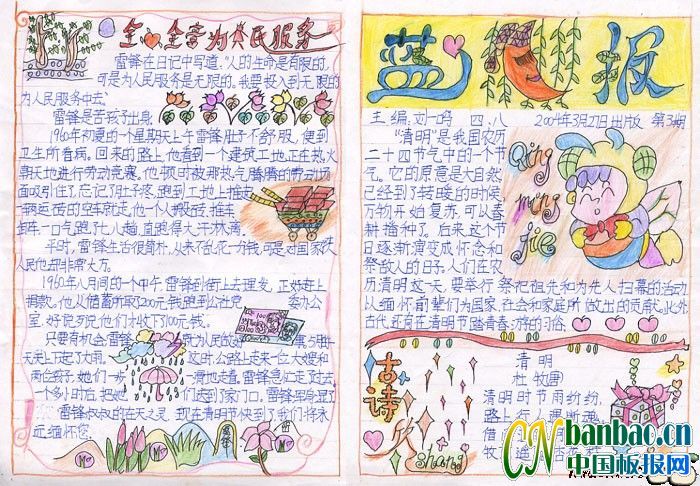 全心全意为人民服务
雷锋在日记中写道:"人的生命是有限的,
可是为人民服务是无限的。我要投入到无限的
为人民服务中去。
雷锋是苦孩子出身
1960年初夏的一个星期天上午雷锋肚子不舒服,便到
卫生所看病。回来的路上,他看到一个建筑工地正在热火
朝天地进行劳动竞赛。他顿时被那热气腾腾的劳动场
面吸引住了,忘记了肚子疼,跑到工地上推走
一辆运砖的空车就走。他一个人搬砖,推车
一口气跑了七八趟,直跑得大汗淋漓。
平时,雷锋生活很简朴,从来不乱花一分钱,可是对国家
人民他却非常大方。
1960年八月间的一个中午,雷锋到街上去理发,正好赶上
捐款。他从储蓄所取200元钱跑到公社党委办公
室,好说歹说他们才收下100元钱。
只要有机会雷锋
天天上下起了大雨。这时,公路上走来一位大嫂和
两位孩子,她们一步一滑地走着。雷锋急忙走了过去
一个多小时后,把她们送到了家门口。雷锋
雷锋叔叔的在天之灵,现在清明节快到了我们将永
远缅怀您。
雷锋
蓝月报
主编:刘一鸣 四、八 2009年3月27日出版 第3期
"清明"是我国农历
二十四节气中的一个节
气。它的原意是大自然
已经到了转暖的时候
万物开始复苏,可以春
耕播种了。后来,这个节
日逐渐演变成怀念和
祭敌人的日子。人们在农
历清明这一天,要举行祭祀祖先和为先人扫墓的活动
以缅怀前辈们为国家、社会和家庭所做出的贡献。此外
古代,还有在清明节踏青春游的习俗。
Qing
ming
jie
古诗
欣
Shang
清明
杜牧
清明时节雨纷纷,
路上行人
借
牧
CN banbao.cn
中国板报网